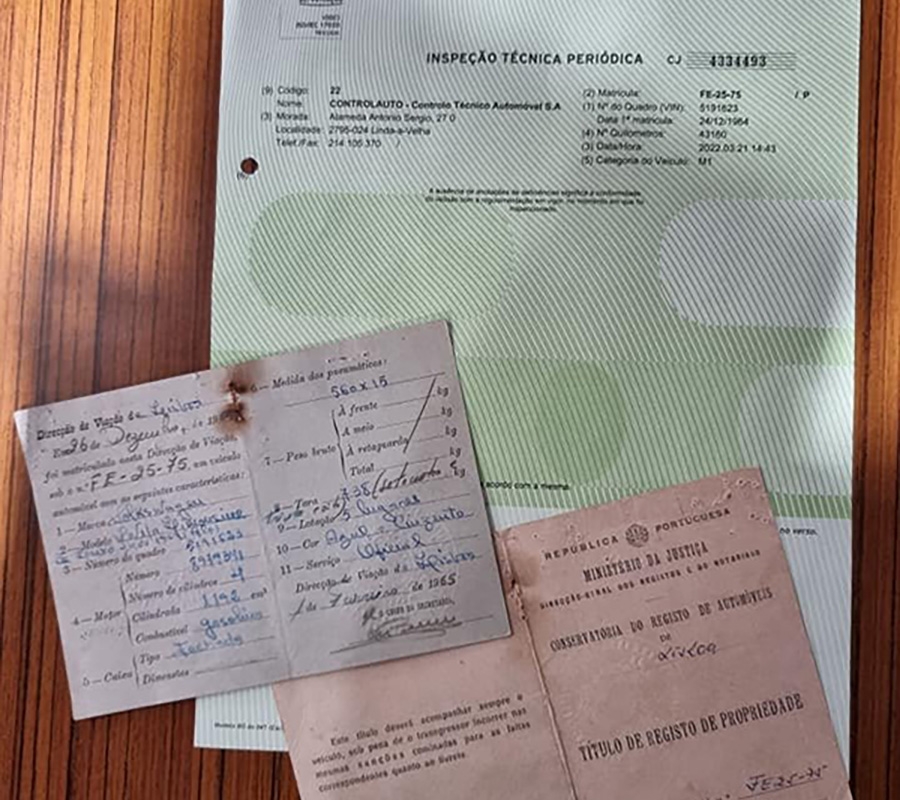 INSPEÇÃO TÉCNICA PERIÓDICA CJ 4334493
(9) Código: 22
Nome: CONTROLAUTO - Controlo Técnico Automóvel S.A
(3) Morada: Alameda Antonio Sergio, 27 0
Localidade: 2795-024 Linda-a-Velha
Telef./Fax: 214 105 370 /
(2) Matrícula: FE-25-75 / P
(1) Nº do Quadro (VIN): 5191623
Data 1ª matrícula: 24/12/1964
(4) Nº Quilómetros: 43160
(3) Data/Hora: 2022.03.21 14:43
(5) Categoria do Veículo: M1
A ausência de anotações de deficiências significa a conformidade
do veículo com a regulamentação em vigor, no momento em que foi
inspeccionado.
acordo com a mesma.
no verso.
Direcção de Viação de Lisboa
Em 26 de Dezembro de
foi matriculado nesta Direcção de Viação,
sob o n.º FE-25-75, um veículo
automóvel com as seguintes características:
1 — Marca
2 — Modelo
3 — Número do quadro 5191623
4 — Motor
Número
Número de cilindros 4
Cilindrada 1192 cm³
Combustível gasolina
5 — Caixa
Tipo Fechada
Dimensões
6 — Medida dos pneumáticos:
560 x 15
7 — Peso bruto
À frente kg
A meio kg
À retaguarda kg
Total kg
8 — Tara kg
9 — Lotação 5 lugares
10 — Cor Azul - Cinzento
11 — Serviço Oficial
Direcção de Viação de Lisboa
1 de Fevereiro de 1965
REPÚBLICA PORTUGUESA
MINISTÉRIO DA JUSTIÇA
DIRECÇÃO-GERAL DOS REGISTOS E DO NOTARIADO
CONSERVATÓRIA DO REGISTO DE AUTOMÓVEIS
DE
LISBOA
TÍTULO DE REGISTO DE PROPRIEDADE
FE-25-75
Este título deverá acompanhar sempre o
veículo, sob pena de o transgressor incorrer nas
mesmas sanções cominadas para as faltas
correspondentes quanto ao livrete.